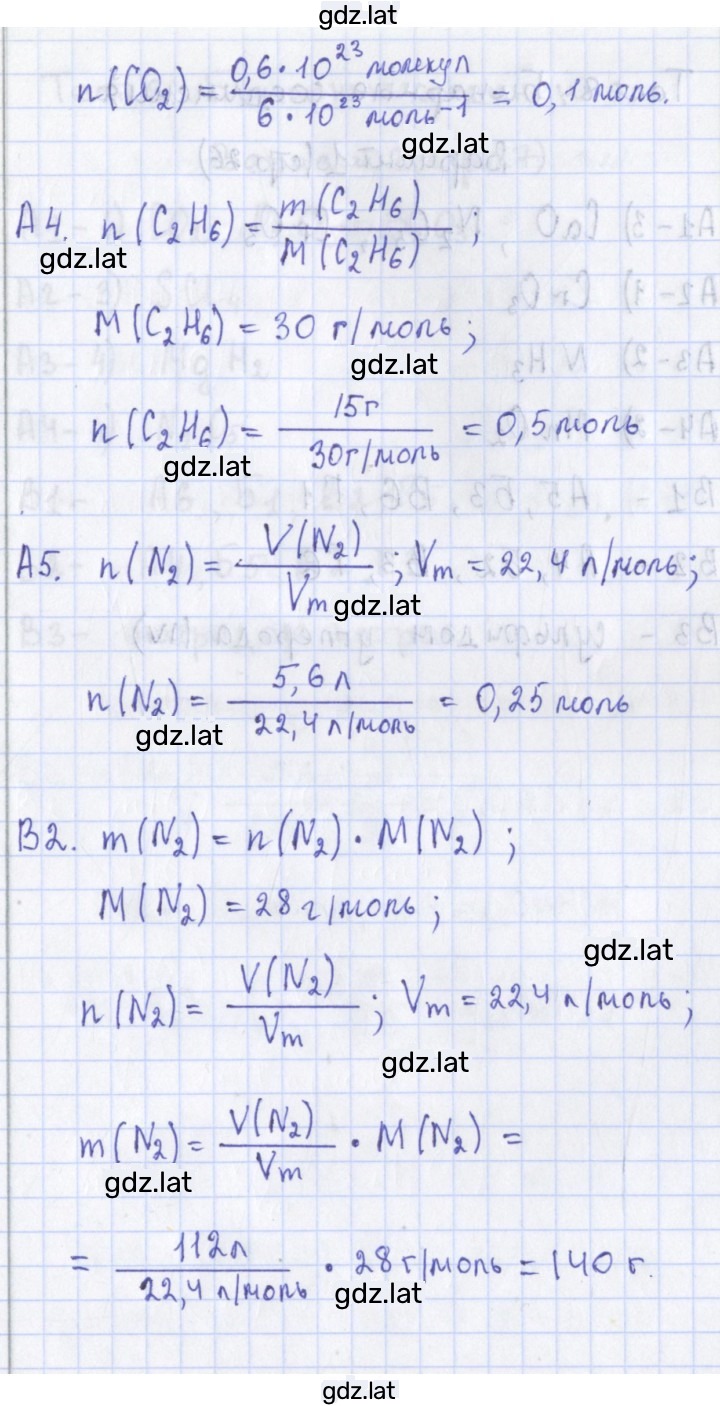 gdz.lat
n(CO₂) = 0,6 · 10²³ молекул / 6 · 10²³ моль⁻¹ = 0,1 моль.
gdz.lat
А4. n(C₂H₆) = m(C₂H₆) / M(C₂H₆) ;
gdz.lat
M(C₂H₆) = 30 г/моль;
gdz.lat
n(C₂H₆) = 15г / 30г/моль = 0,5 моль
gdz.lat
А5. n(N₂) = V(N₂) / Vm ; Vm = 22,4 л/моль;
gdz.lat
n(N₂) = 5,6 л / 22,4 л/моль = 0,25 моль
gdz.lat
В2. m(N₂) = n(N₂) · M(N₂) ;
M(N₂) = 28 г/моль;
gdz.lat
n(N₂) = V(N₂) / Vm ; Vm = 22,4 л/моль;
gdz.lat
m(N₂) = V(N₂) / Vm · M(N₂) =
gdz.lat
= 112л / 22,4 л/моль · 28 г/моль = 140 г.
gdz.lat
gdz.lat